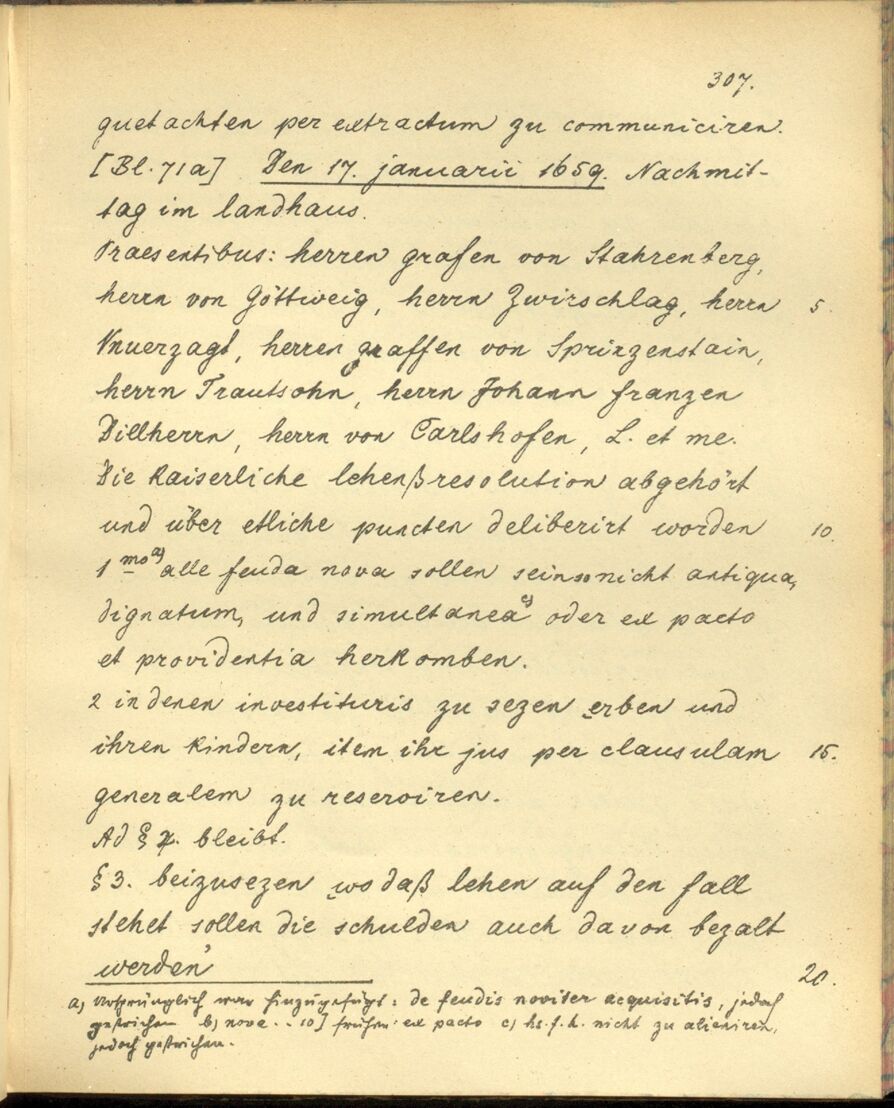 307.
guetachten per extractum zu communiciren.
[Bl. 71a] Den 17. januarii 1659. Nachmit-
tag im landhaus.
Praesentibus: herren grafen von Stahrenberg,
herrn von Göttweig, herrn Zwirschlag, herrn 5.
Vnuerzagt, herren graffen von Sprinzenstain,
herrn Trautsohn, herrn Johann franzen
Dillherrn, herrn von Carlshofen, L. et me.
Die Kaiserliche lehenßresolution abgehört
und über etliche puncten deliberirt worden 10.
1 mo a) alle feuda nova sollen sein so nicht antiqua,
dignatum, und simultanea c) oder ex pacto
et providentia herkomben.
2 in denen investituris zu sezen "erben und
ihren Kindern, item ihr jus per clausulam 15.
generalem zu reserviren.
Ad § 2. bleibt.
§ 3. beizusezen "wo daß lehen auf den fall
stehet sollen die schulden auch davon bezalt
werden" 20.
a) Ursprünglich war hinzugefügt: de feudis noviter acquisitis, jedoch
gestrichen b) nova .. 10] früher: ex pacto c) hs. f. h. nicht zu alieniren,
jedoch gestrichen.